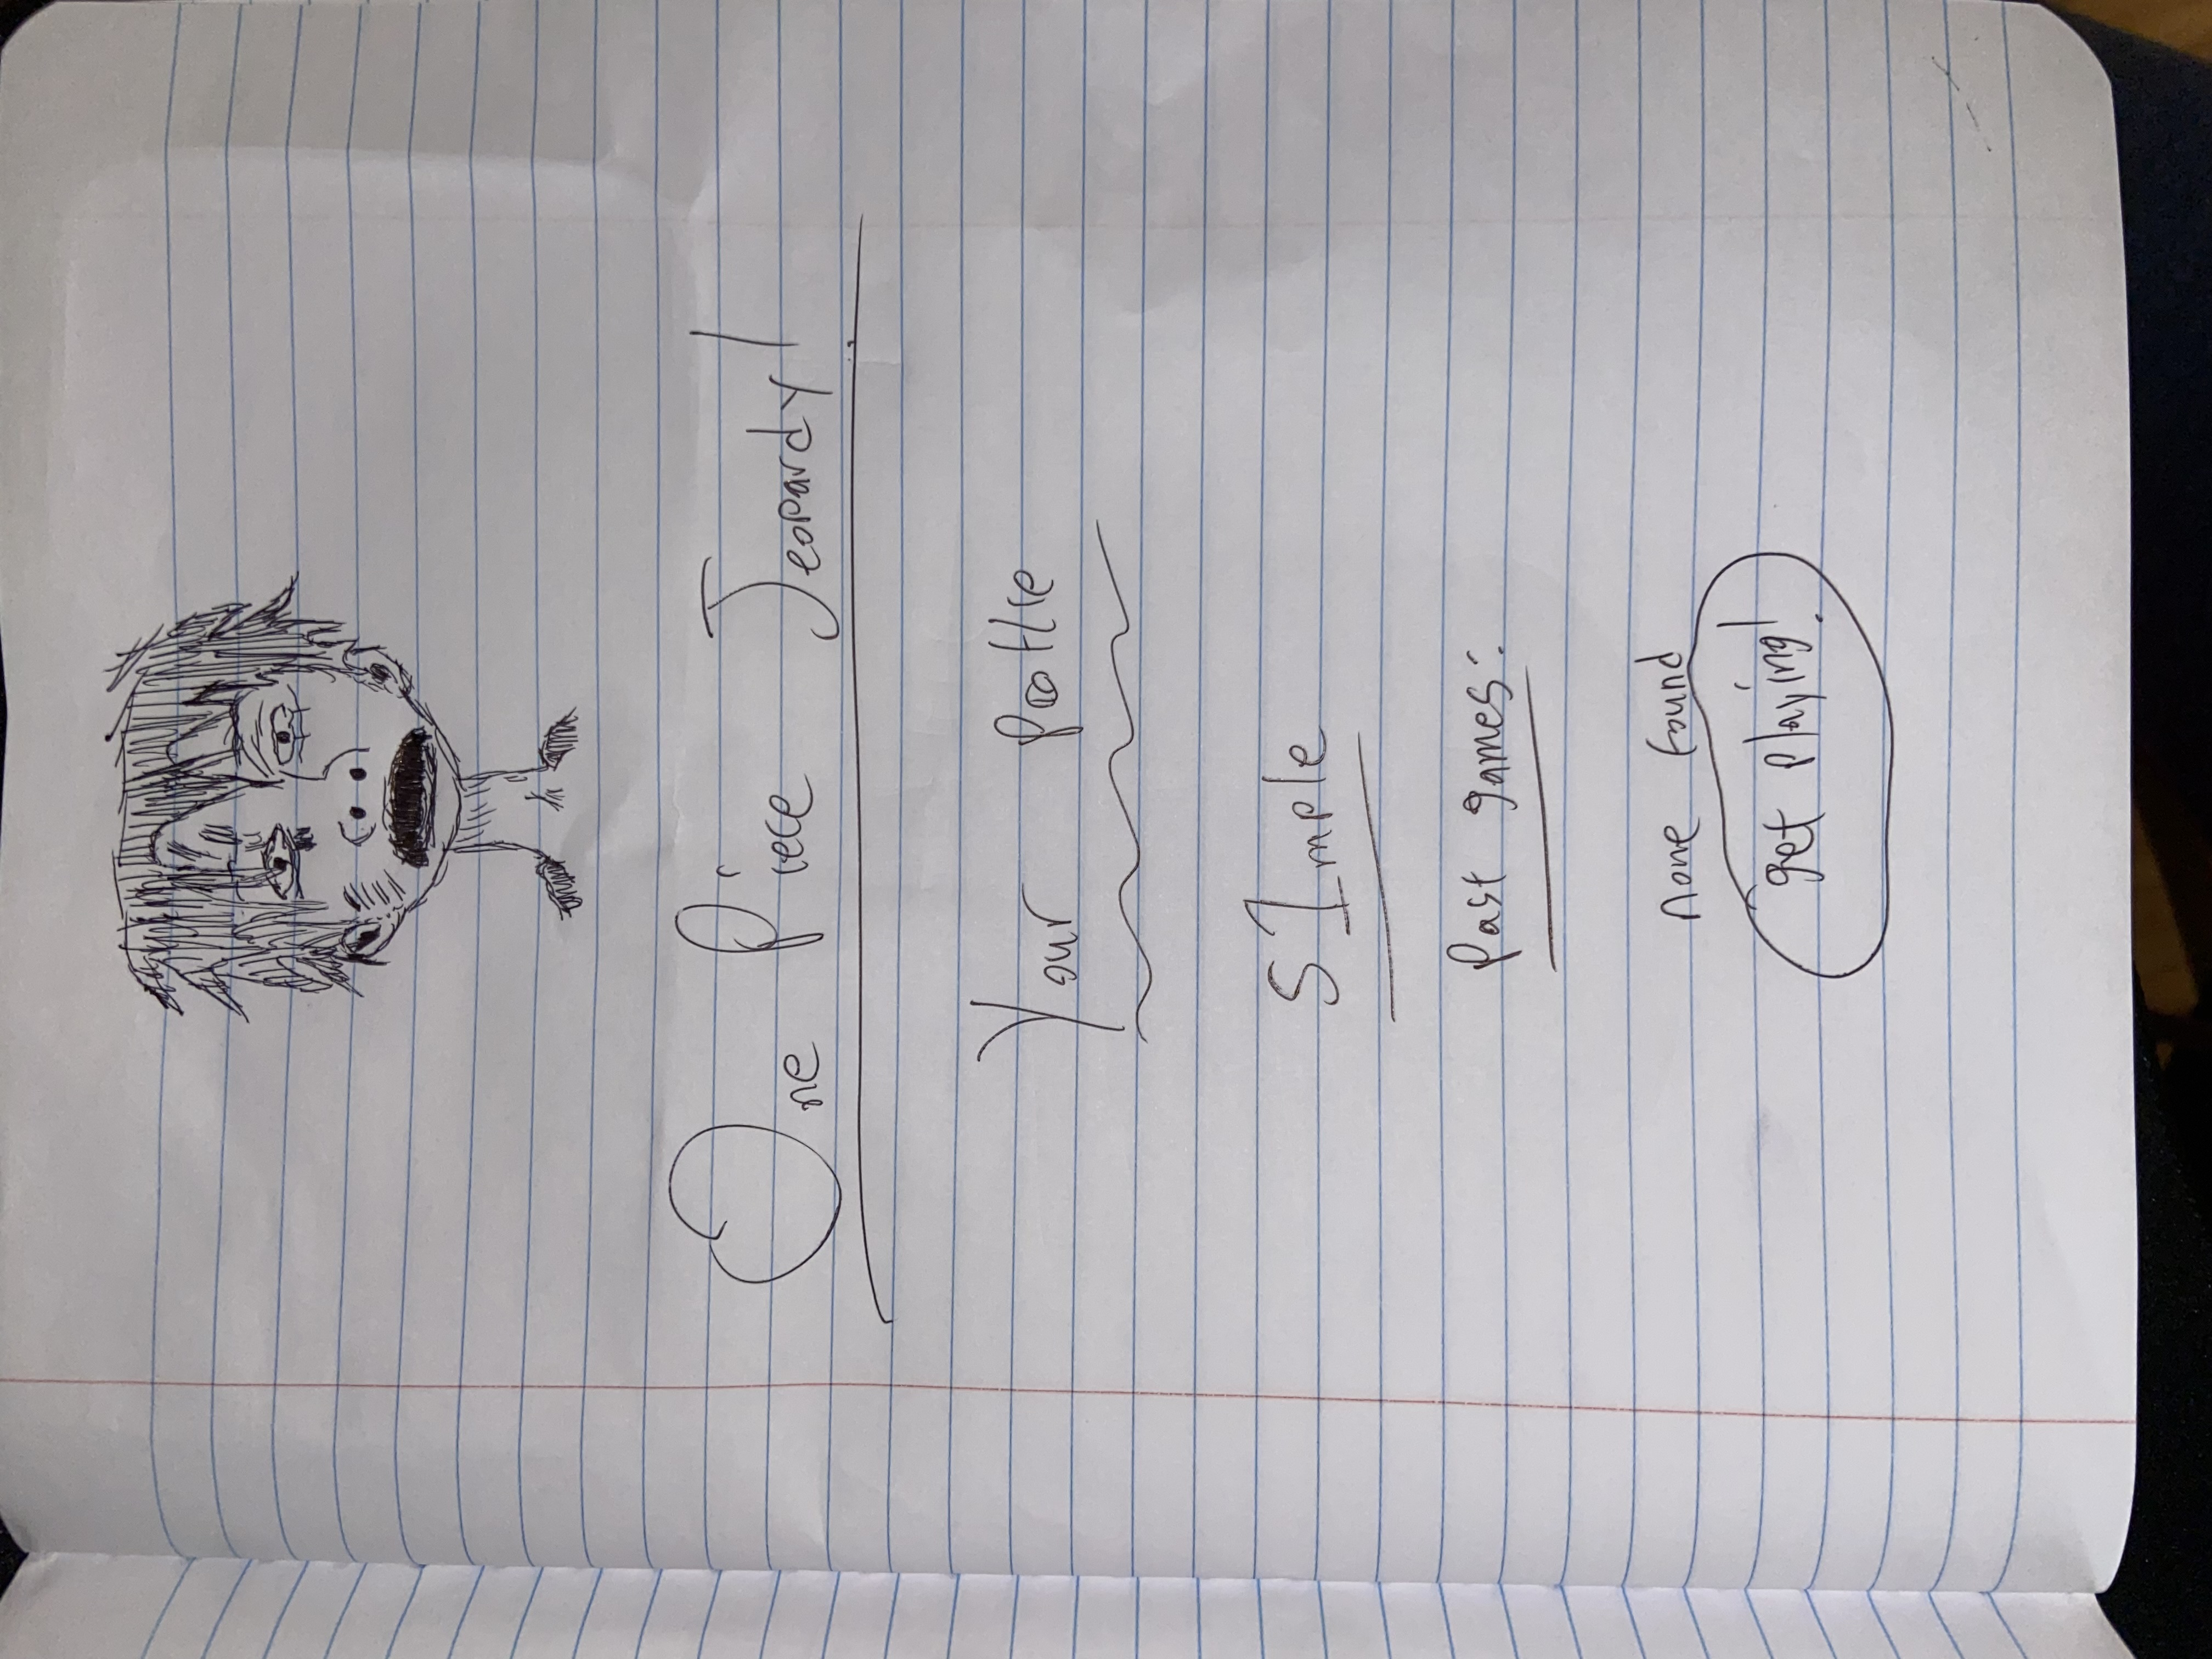 One Piece Jeopardy!
Your
SImple
Past games:
none found
get playing!